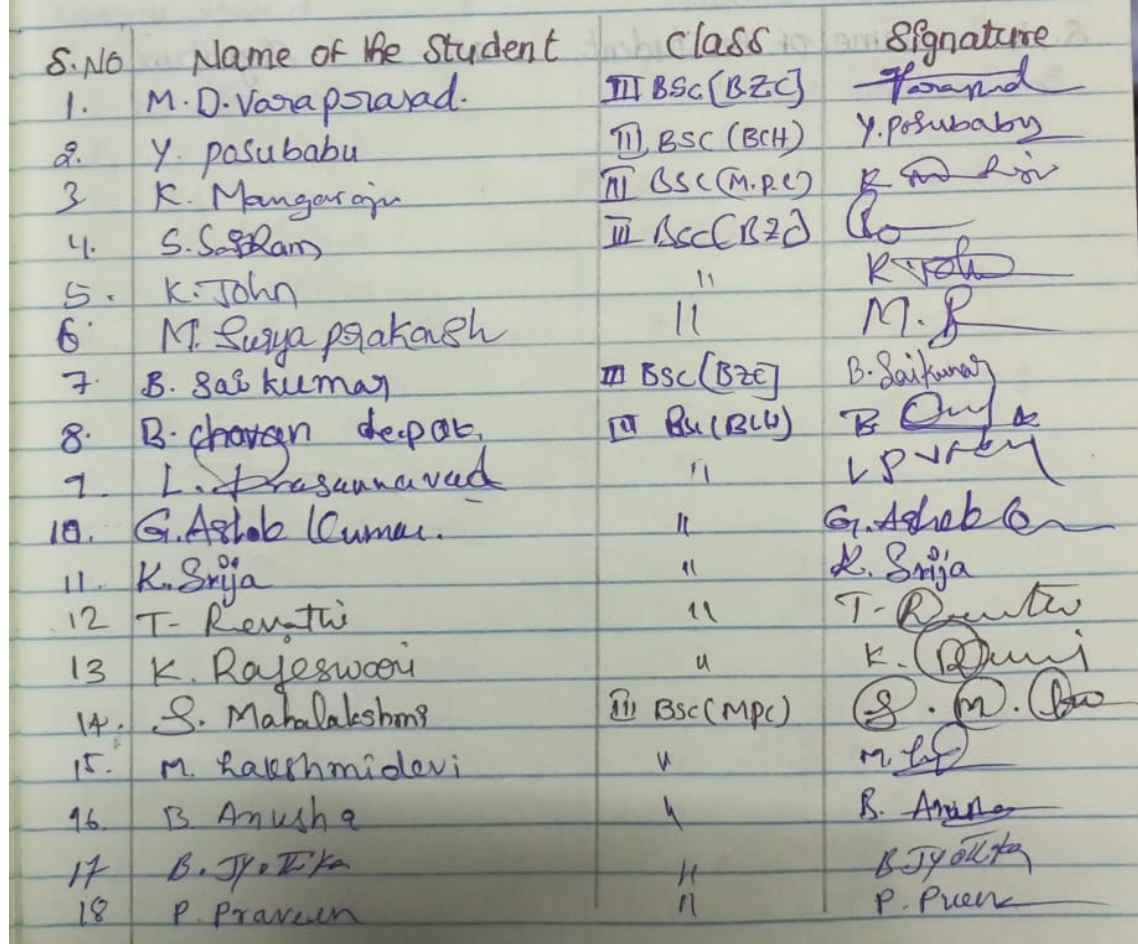 S.No Name of the Student class Signature
1. M.D.Varaprasad. III BSC (BZC)
2. Y. posubabu III BSC (BCH) Y.posubabu
3 K. Mangaraju III BSC (M.P.C) K
4. S. SaiRam III BSC (BZC)
5. K. John 11 K. John
6 M. Surya prakash 11 M.
7. B. Sai kumar III BSC (BZC) B. Saikumar
8. B. charan deepak. III BSC (BCH) B
9. L. Prasannavad 11 L P
10. G. Ashok Kumar. 11 G. Ashok
11. K. Srija 11 K. Srija
12 T- Revathi 11 T-
13 K. Rajeswari 11 K.
14. S. Mahalakshmi III BSC (MPC) S. M.
15. M. Lakshmidevi 11 M.
16. B Anusha 11 B.
17 B. Jyothika 11 B Jyothika
18 P. Praveen 11 P.